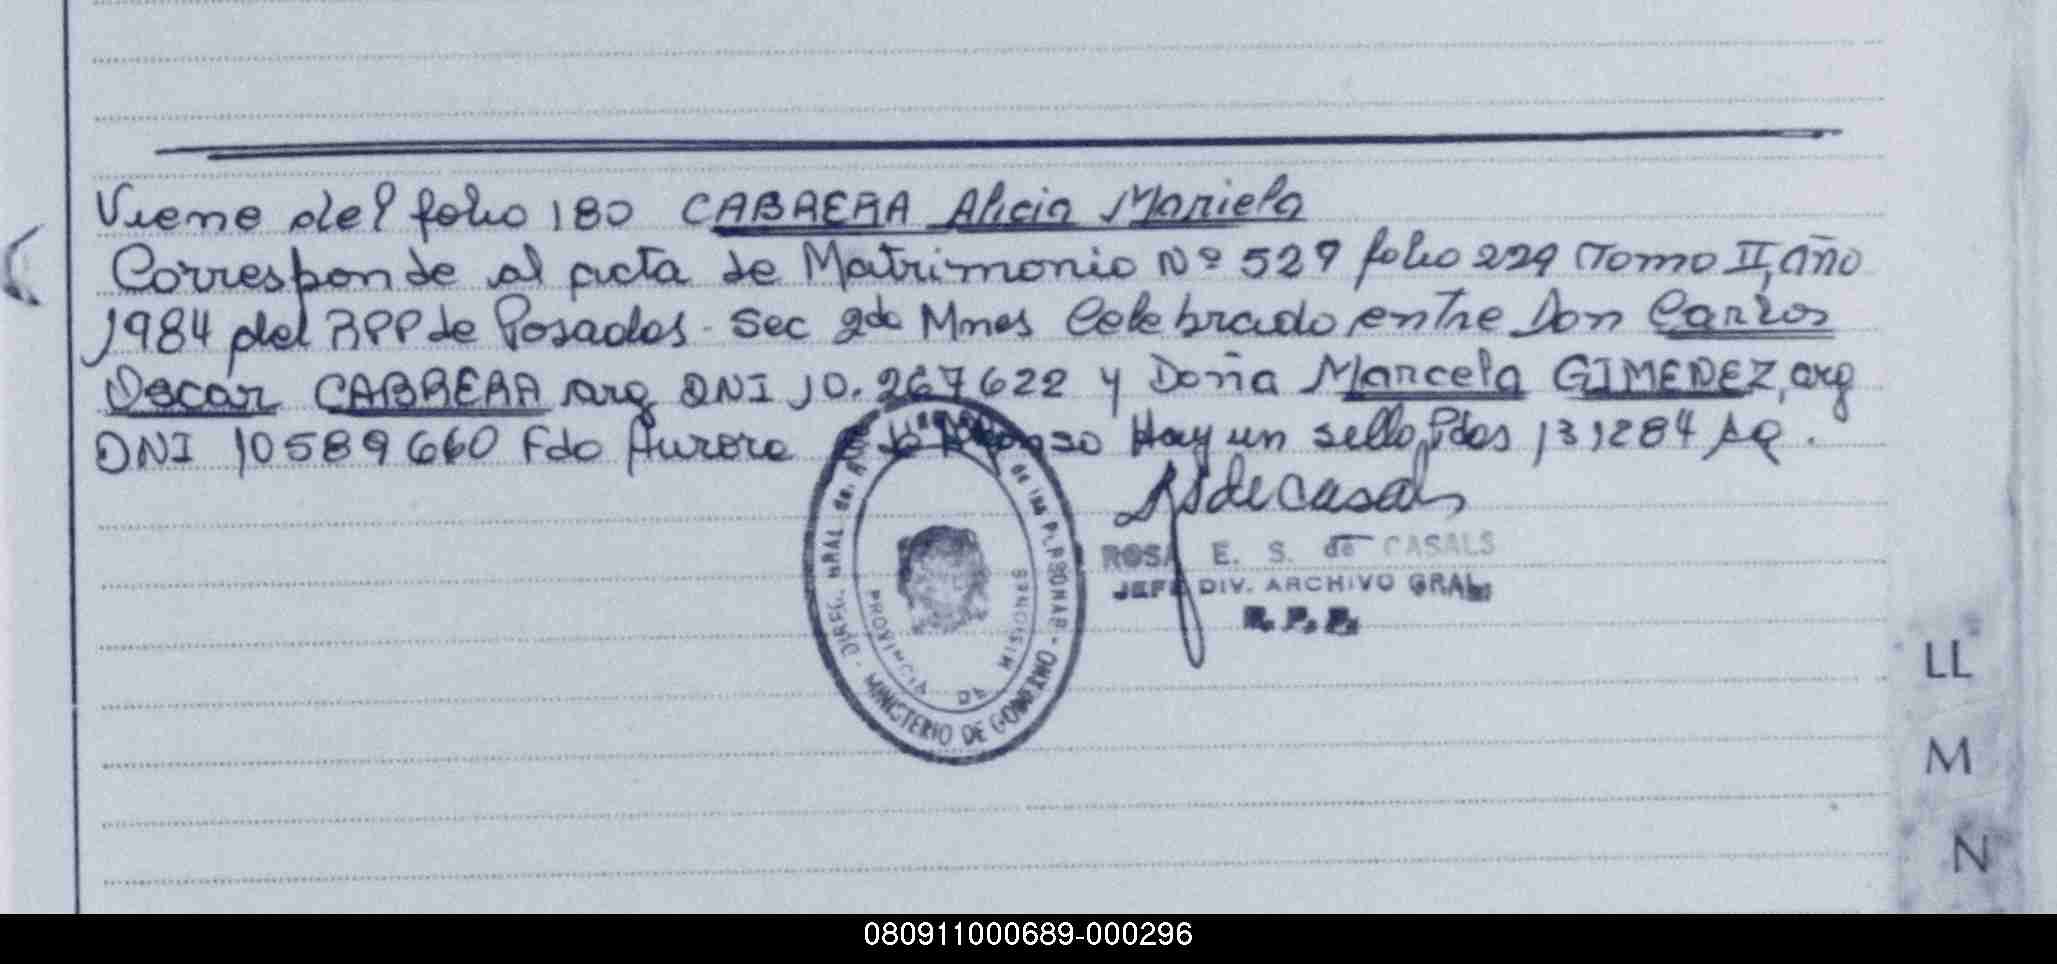 Viene del folio 180 CABRERA Alicia Mariela
Corresponde al acta de Matrimonio Nº 527 folio 229 Tomo II, año
1984 del RPP de Posadas - Sec 2da Mnes Celebrado entre Don Carlos
Oscar CABRERA arg DNI 10.267622 y Doña Marcela GIMENEZ, arg
DNI 10589660 Fdo Aurora Hay un sello Pdas 131284
de Casals
ROSA E. S. de CASALS
JEFE DIV. ARCHIVO GRAL.
R. P. P.
DIREC. GRAL. de las PERSONAS - MINISTERIO DE GOBIERNO
PROVINCIA DE MISIONES
LL
M
N
080911000689-000296